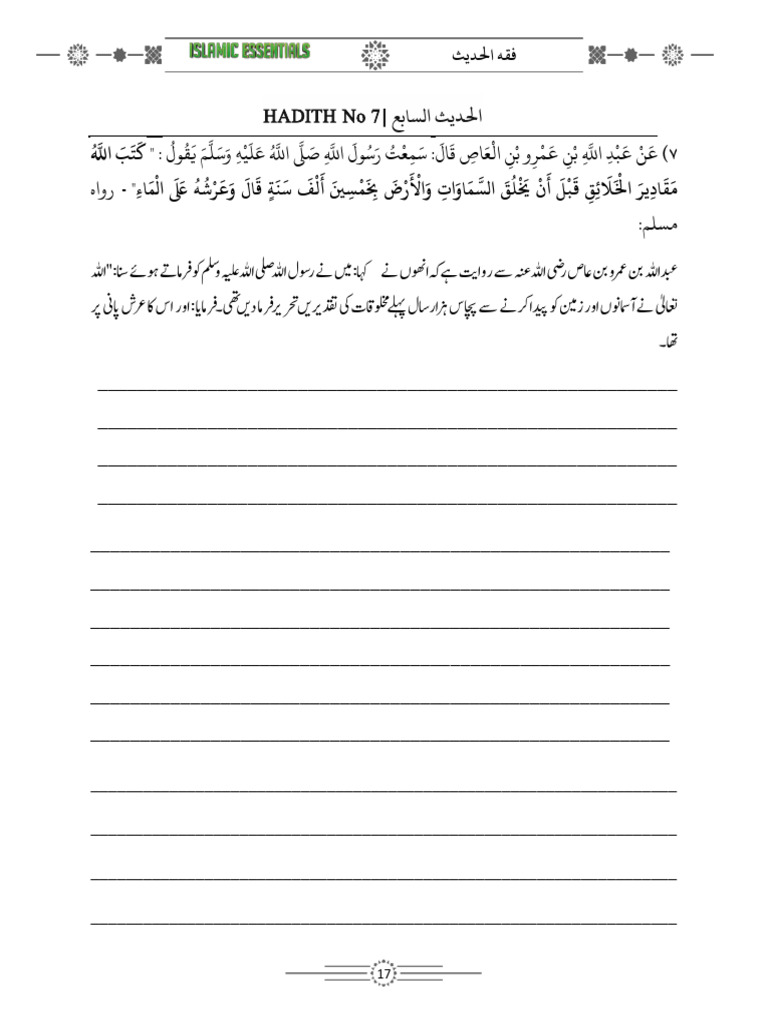 ISLAMIC ESSENTIALS
فقه الحديث
الحديث السابع |HADITH No 7
٧) عَنْ عَبْدِ اللَّهِ بْنِ عَمْرِو بْنِ الْعَاصِ قَالَ: سَمِعْتُ رَسُولَ اللَّهِ صَلَّى اللَّهُ عَلَيْهِ وَسَلَّمَ يَقُولُ : " كَتَبَ اللَّهُ
مَقَادِيرَ الْخَلَائِقِ قَبْلَ أَنْ يَخْلُقَ السَّمَاوَاتِ وَالْأَرْضَ بِخَمْسِينَ أَلْفَ سَنَةٍ قَالَ وَعَرْشُهُ عَلَى الْمَاءِ" - رواه
مسلم:
عبداللہ بن عمرو بن عاص رضی اللہ عنہ سے روایت ہے کہ انھوں نے کہا: میں نے رسول اللہ صلی اللہ علیہ وسلم کو فرماتے ہوئے سنا: "اللہ
تعالیٰ نے آسمانوں اور زمین کو پیدا کرنے سے پچاس ہزار سال پہلے مخلوقات کی تقدیریں تحریر فرما دیں تھی۔ فرمایا: اور اس کا عرش پانی پر
تھا۔
17